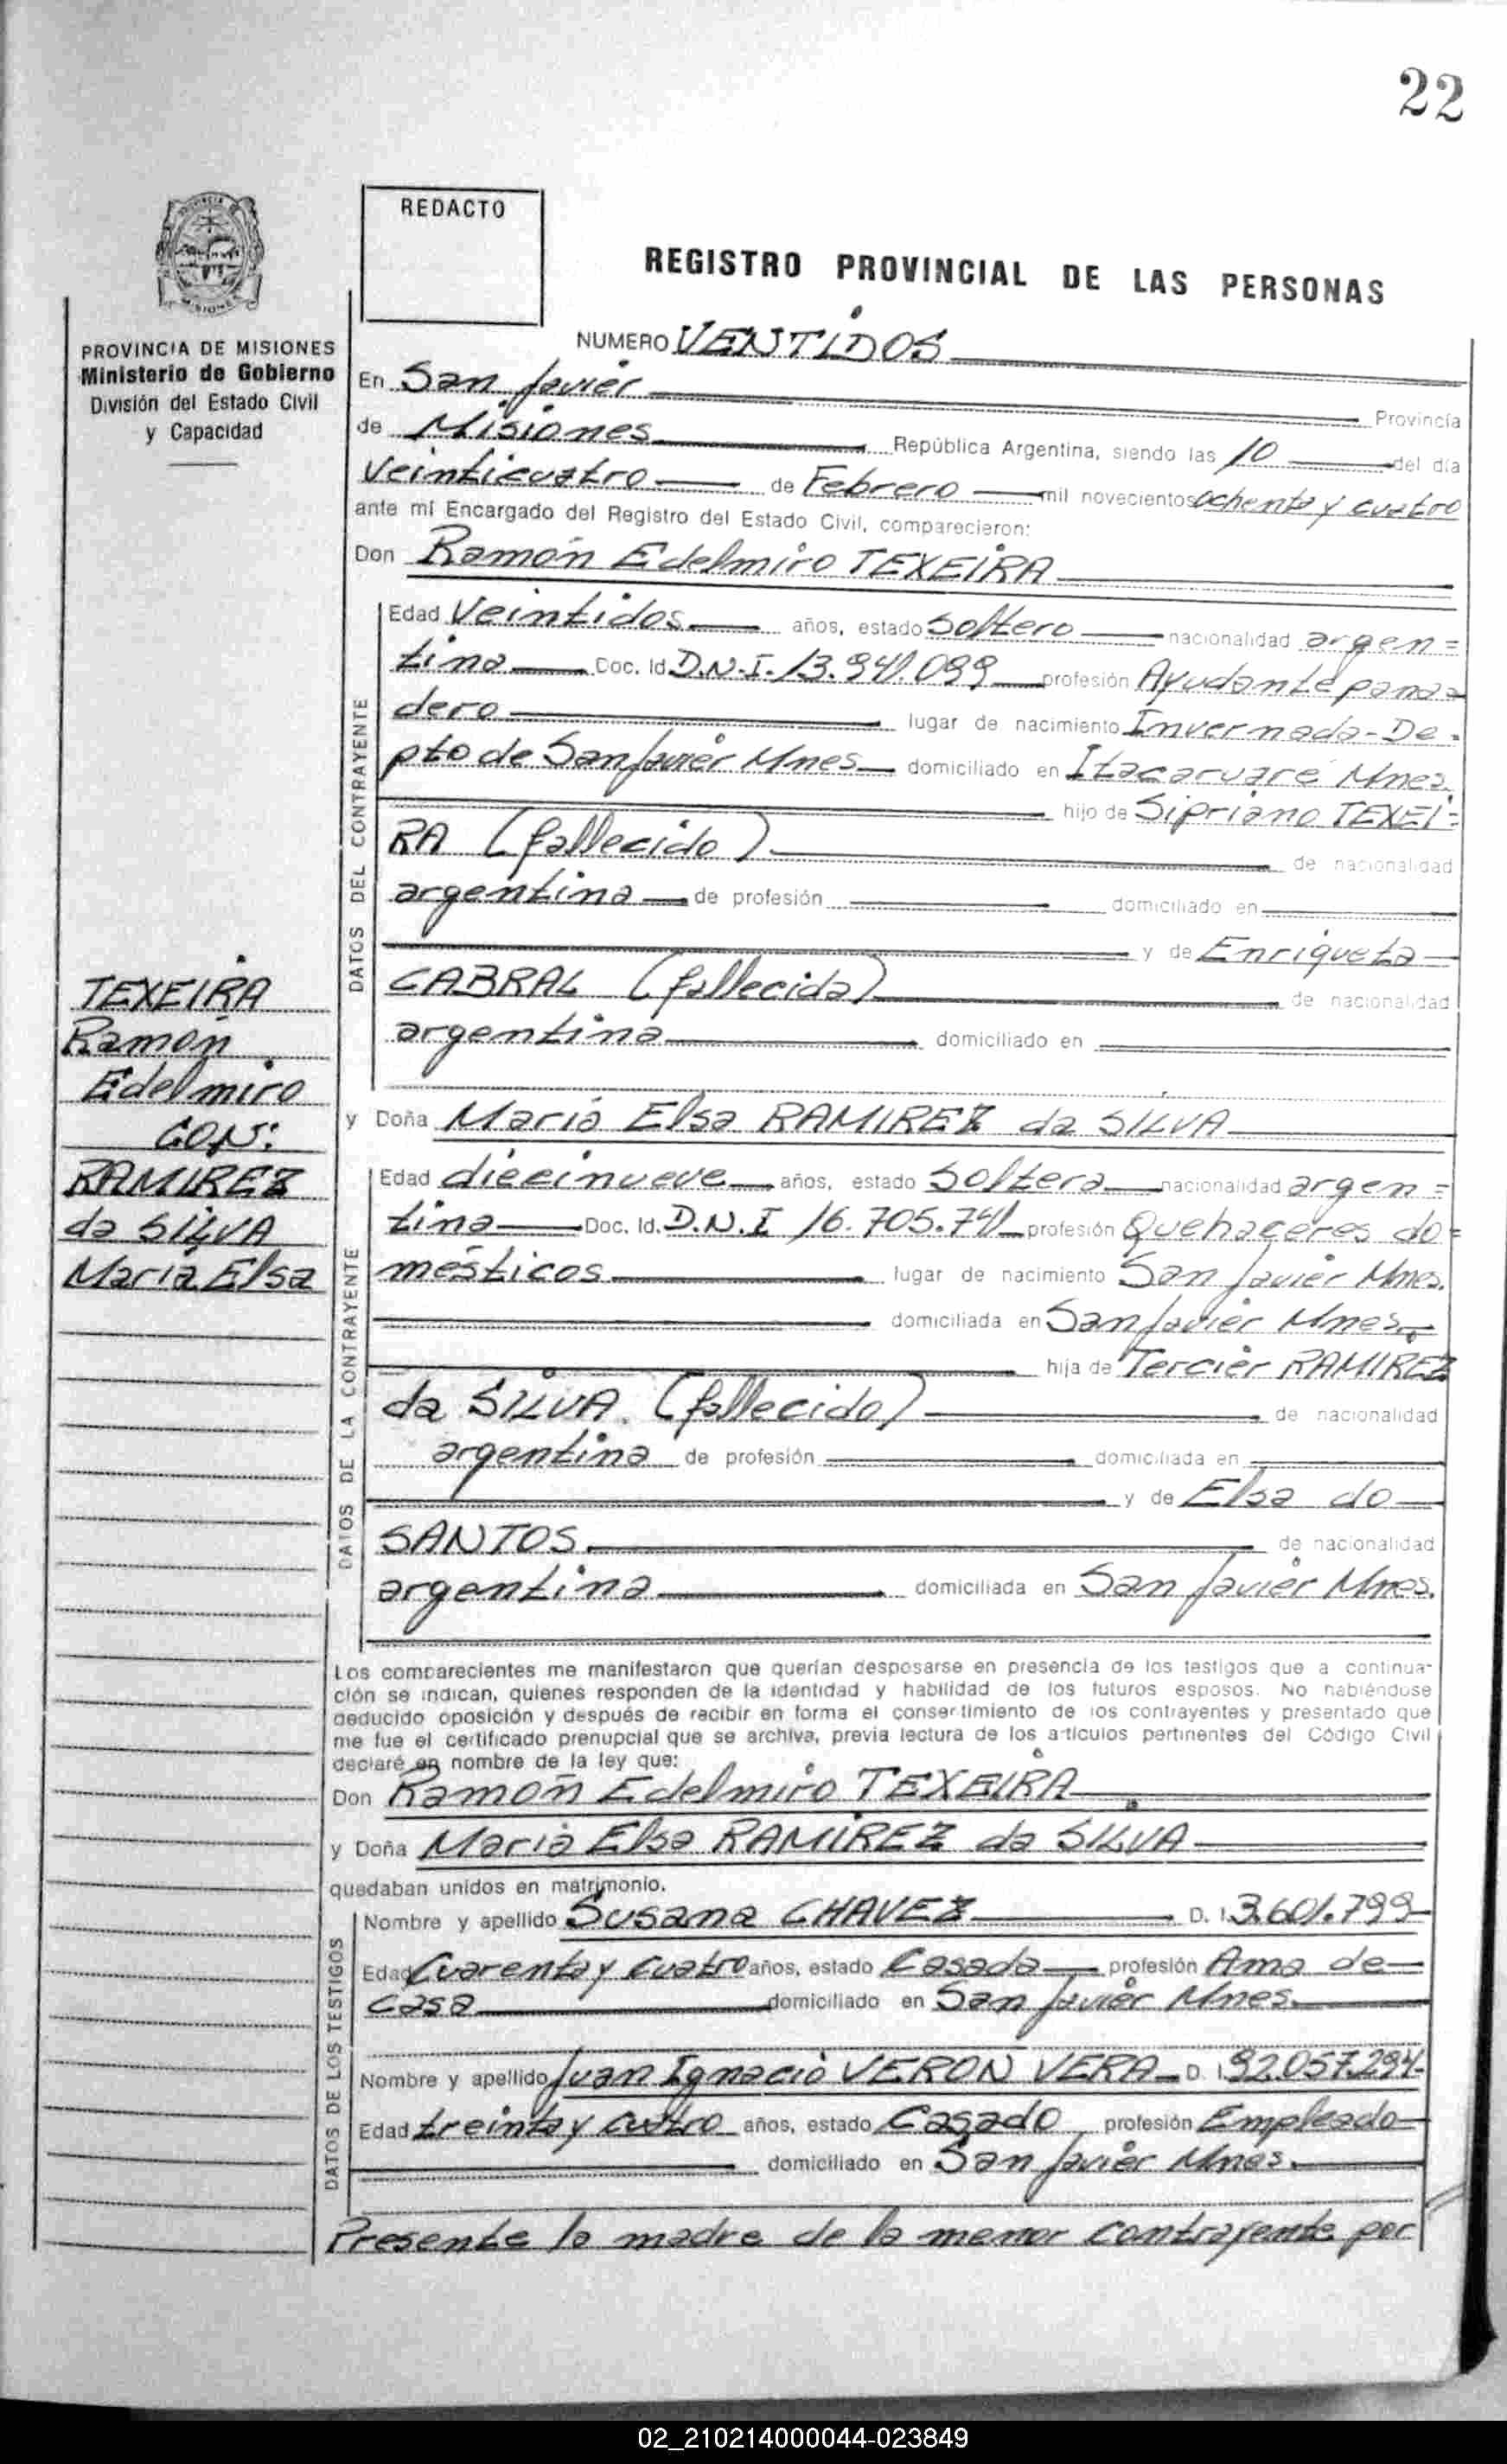 22
REDACTO
REGISTRO PROVINCIAL DE LAS PERSONAS
MISIONES
PROVINCIA DE MISIONES
Ministerio de Gobierno
División del Estado Civil
y Capacidad
NUMERO VENTIDOS
En San Javier Provincia
de Misiones República Argentina, siendo las 10 del día
Veinticuatro de Febrero mil novecientos ochenta y cuatro
ante mí Encargado del Registro del Estado Civil, comparecieron:
Don Ramón Edelmiro TEXEIRA
DATOS DEL CONTRAYENTE
Edad Veintidos años, estado Soltero nacionalidad argen=
tina Doc. Id. D.N.I. 13.941.099 profesión Ayudante pana=
dero lugar de nacimiento Invernada-De-
pto de San Javier Mnes domiciliado en Itacaruaré Mnes.
hijo de Sipriano TEXEI=
RA (fallecido) de nacionalidad
argentina de profesión domiciliado en
y de Enriqueta
CABRAL (fallecida) de nacionalidad
argentina domiciliado en
TEXEIRA
Ramón
Edelmiro
CON:
RAMIREZ
da SILVA
María Elsa
y Doña María Elsa RAMIREZ da SILVA
DATOS DE LA CONTRAYENTE
Edad diecinueve años, estado Soltera nacionalidad argen=
tina Doc. Id. D.N.I 16.705.741 profesión Quehaceres do=
mésticos lugar de nacimiento San Javier Mnes.
domiciliada en San Javier Mnes.
hija de Tercier RAMIREZ
da SILVA. (fallecido) de nacionalidad
argentina de profesión domiciliada en
y de Elsa do
SANTOS. de nacionalidad
argentina domiciliada en San Javier Mnes.
Los comparecientes me manifestaron que querían desposarse en presencia de los testigos que a continua-
ción se indican, quienes responden de la identidad y habilidad de los futuros esposos. No habiéndose
deducido oposición y después de recibir en forma el consertimiento de los contrayentes y presentado que
me fue el certificado prenupcial que se archiva, previa lectura de los artículos pertinentes del Código Civil
declaré en nombre de la ley que:
Don Ramón Edelmiro TEXEIRA
y Doña María Elsa RAMIREZ da SILVA
quedaban unidos en matrimonio.
DATOS DE LOS TESTIGOS
Nombre y apellido Susana CHAVEZ D. I. 3.601.799
Edad Cuarenta y cuatro años, estado Casada profesión Ama de
casa domiciliado en San Javier Mnes.
Nombre y apellido Juan Ignacio VERON VERA D. I. 92.057.294-
Edad treinta y cuatro años, estado Casado profesión Empleado
domiciliado en San Javier Mnes.
Presente la madre de la menor contrayente por
02_210214000044-023849